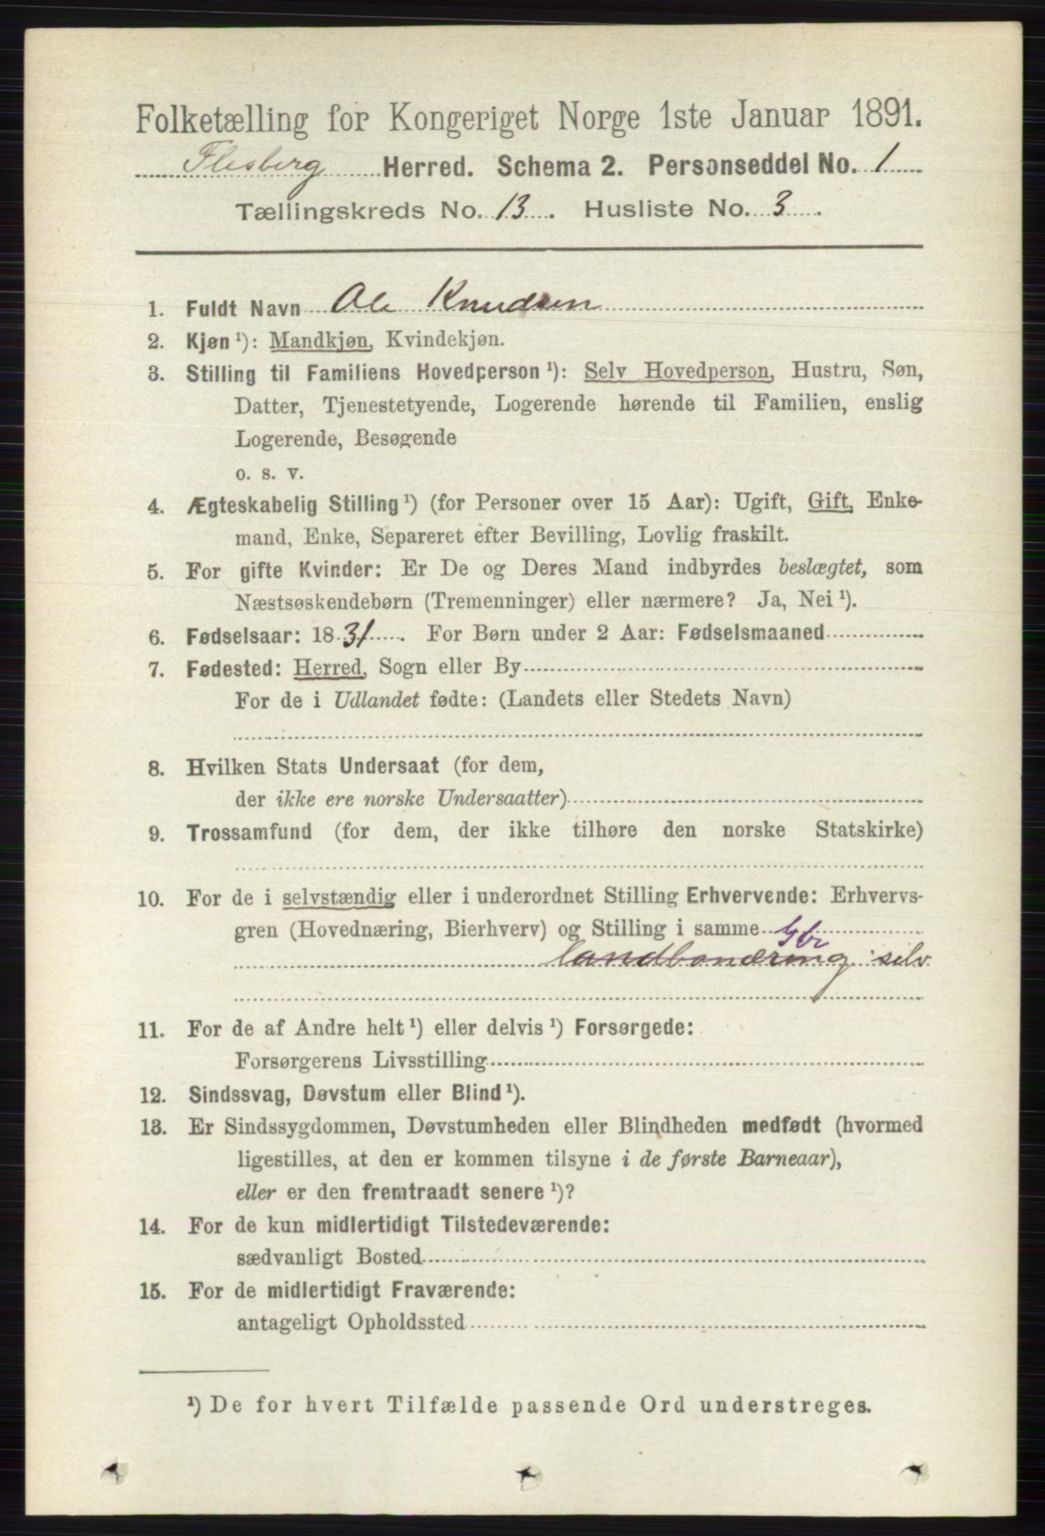 Folketælling for Kongeriget Norge 1ste Januar 1891.
Flesberg Herred. Schema 2. Personseddel No. 1
Tællingskreds No. 13. Husliste No. 3.
1. Fuldt Navn Ole Knudsen
2. Kjøn ¹): Mandkjøn, Kvindekjøn.
3. Stilling til Familiens Hovedperson ¹): Selv Hovedperson, Hustru, Søn,
Datter, Tjenestetyende, Logerende hørende til Familien, enslig
Logerende, Besøgende
o. s. v.
4. Ægteskabelig Stilling ¹) (for Personer over 15 Aar): Ugift, Gift, Enke-
mand, Enke, Separeret efter Bevilling, Lovlig fraskilt.
5. For gifte Kvinder: Er De og Deres Mand indbyrdes beslægtet, som
Næstsøskendebørn (Tremenninger) eller nærmere? Ja, Nei ¹).
6. Fødselsaar: 1831. For Børn under 2 Aar: Fødselsmaaned
7. Fødested: Herred, Sogn eller By
For de i Udlandet fødte: (Landets eller Stedets Navn)
8. Hvilken Stats Undersaat (for dem,
der ikke ere norske Undersaatter)
9. Trossamfund (for dem, der ikke tilhøre den norske Statskirke)
10. For de i selvstændig eller i underordnet Stilling Erhvervende: Erhvervs-
gren (Hovednæring, Bierhverv) og Stilling i samme Gbr
landbonæring selv
11. For de af Andre helt ¹) eller delvis ¹) Forsørgede:
Forsørgerens Livsstilling
12. Sindssvag, Døvstum eller Blind ¹).
13. Er Sindssygdommen, Døvstumheden eller Blindheden medfødt (hvormed
ligestilles, at den er kommen tilsyne i de første Barneaar),
eller er den fremtraadt senere ¹)?
14. For de kun midlertidigt Tilstedeværende:
sædvanligt Bosted
15. For de midlertidigt Fraværende:
antageligt Opholdssted
¹) De for hvert Tilfælde passende Ord understreges.